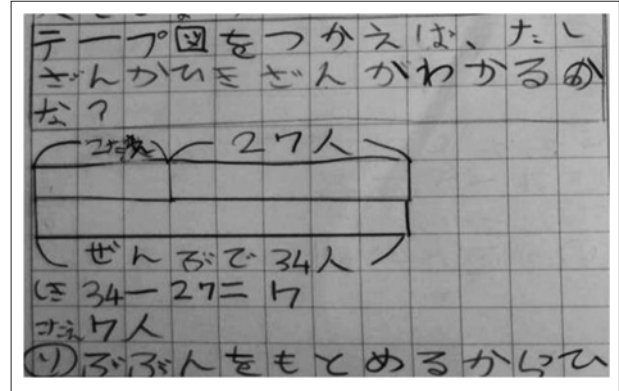 テープ図をつかえば、たし
ざんかひきざんがわかるのか
な?
こたえ 27人
ぜんぶで34人
しき 34-27=7
こたえ 7人
り ぶぶんをもとめるからひ